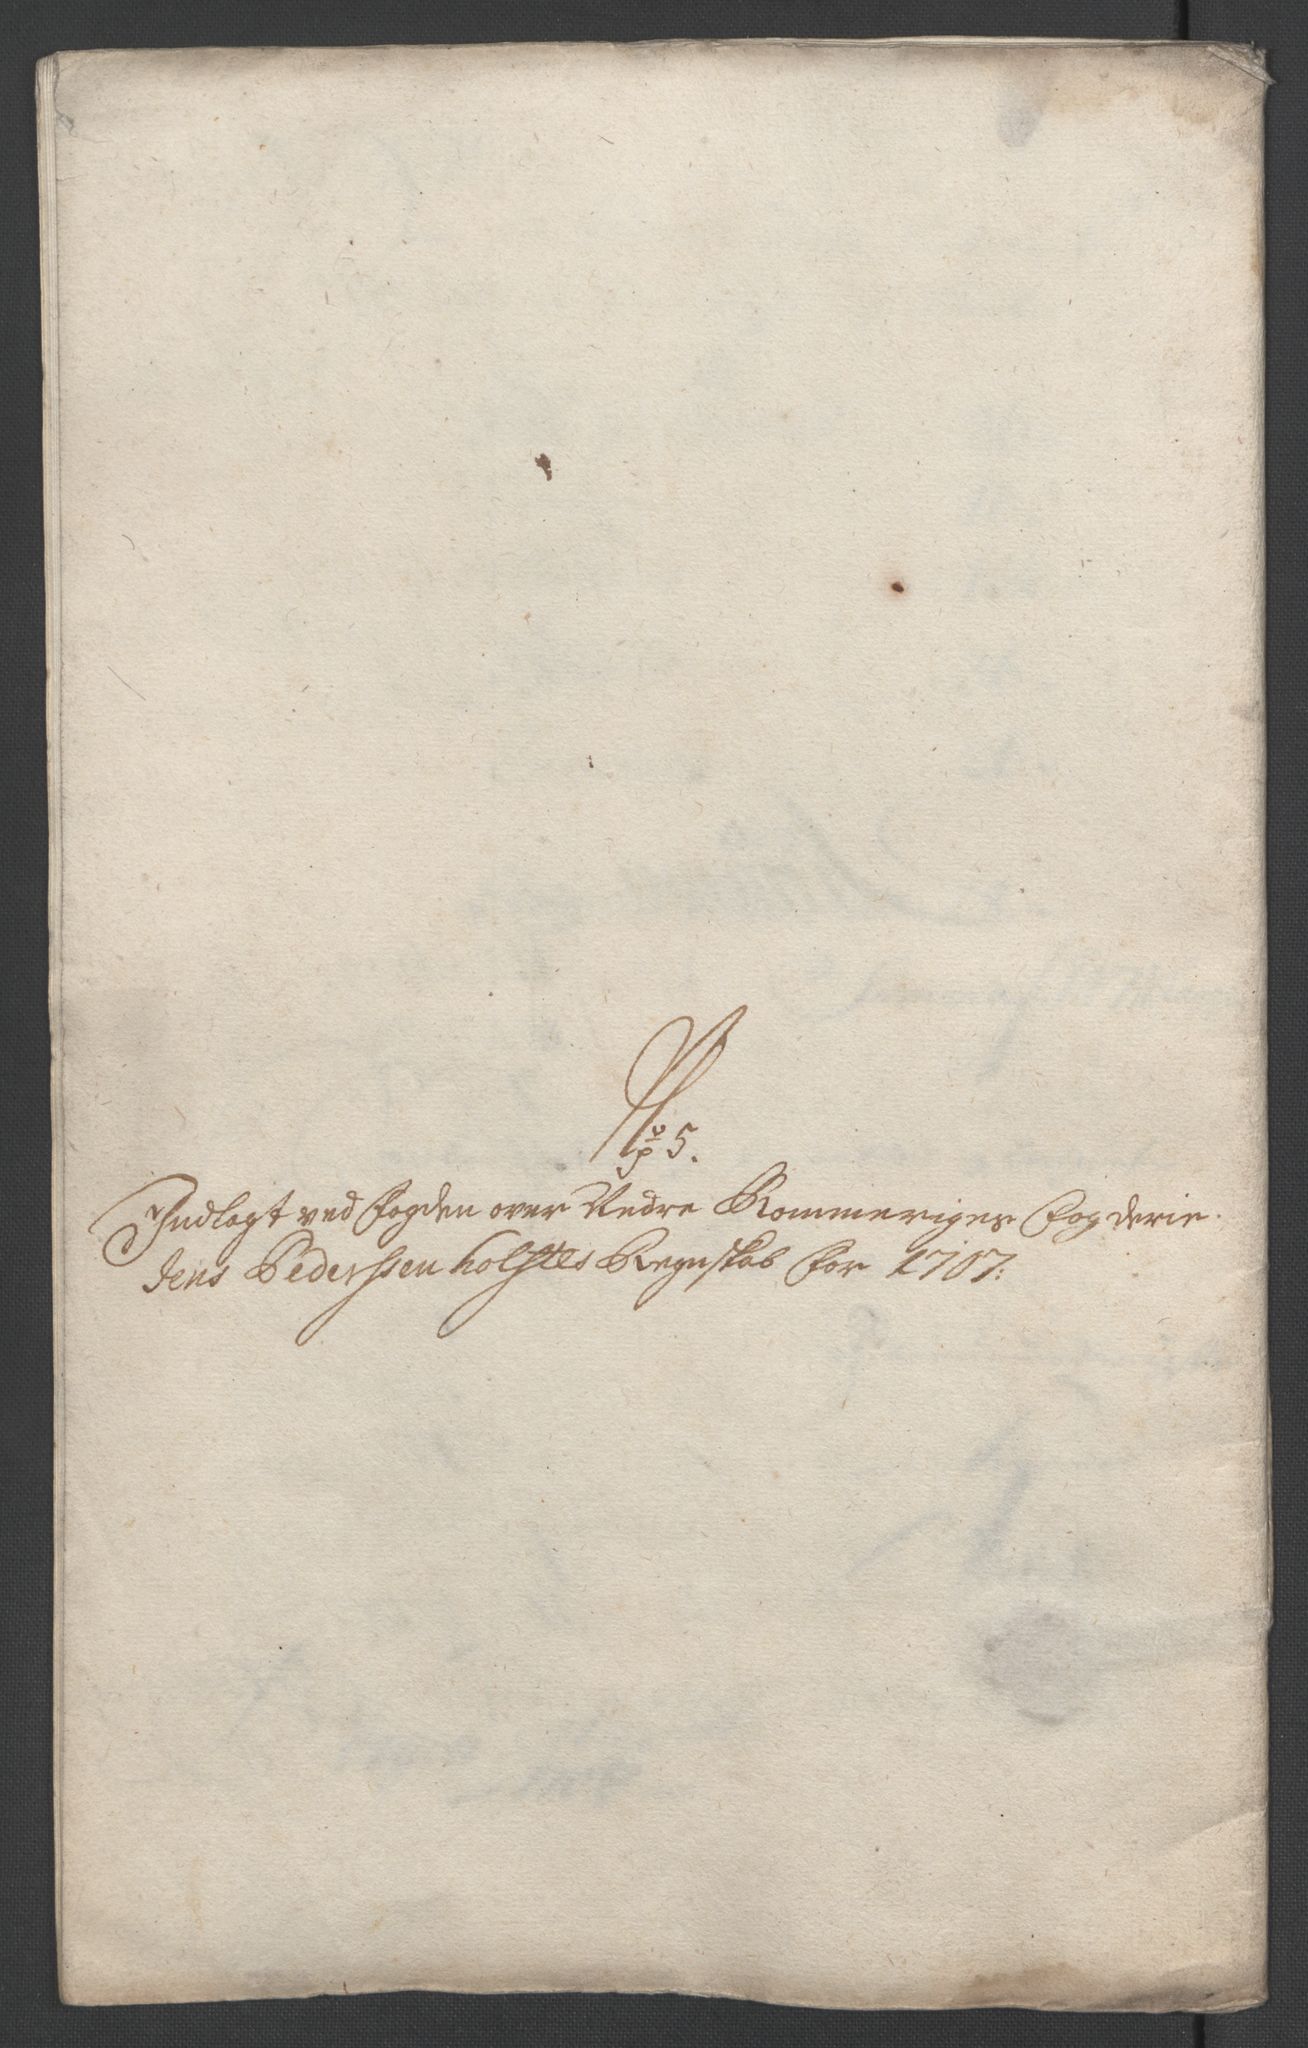 No 5.
Indlagt ved fogden over Nedre Rommeriges fogderie
Jens Pederssen holstes Regnskab for 1707: